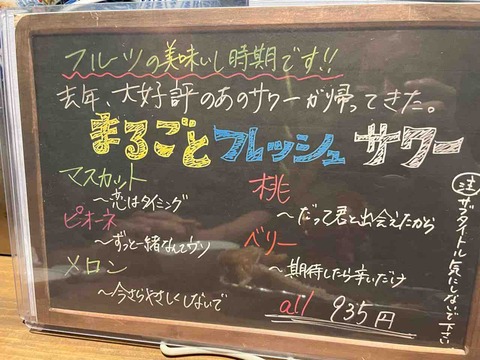 フルーツの美味いし時期です!!
去年、大好評のあのサワーが帰ってきた。
まるごとフレッシュサワー
マスカット
〜恋はタイミング
ピオーネ
〜ずっと一緒なんてウソ
メロン
〜今さらやさしくしないで
桃
〜だって君と出会えたから
ベリー
〜期待したら辛いだけ
all 935円
注 サブタイトル気にしないで下さい